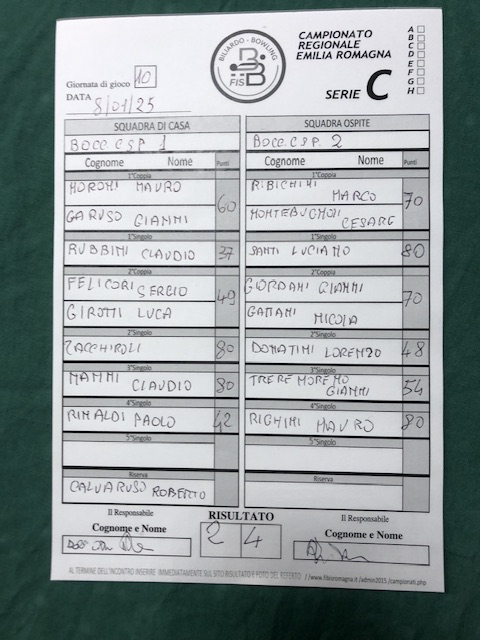 CAMPIONATO
REGIONALE
EMILIA ROMAGNA
SERIE C
A
B
C
D
E
F
G
H
BILIARDO - BOWLING
FISBB
Giornata di gioco 10
DATA 8/01/25
SQUADRA DI CASA
SQUADRA OSPITE
BOCC. C.S.P. 1
BOCC. C.S.P. 2
Cognome Nome Punti
Cognome Nome Punti
1°Coppia
1°Coppia
MORONI MAURO
GARUSO GIANNI
60
RIBICHINI MARCO
MONTEBUGNOLI CESARE
70
1°Singolo
1°Singolo
RUBBINI CLAUDIO 37
SANTI LUCIANO 80
2°Coppia
2°Coppia
FELICORI SERGIO
GIROTTI LUCA
49
GIORDANI GIANNI
GATTANI NICOLA
70
2°Singolo
2°Singolo
ZACCHIROLI 80
DONATINI LORENZO 48
3°Singolo
3°Singolo
NANNI CLAUDIO 80
TRERE MORENO
GIANNI
54
4°Singolo
4°Singolo
RINALDI PAOLO 42
RIGHINI MAURO 80
5°Singolo
5°Singolo
Riserva
Riserva
CALVARUSO ROBERTO
Il Responsabile
Cognome e Nome
RISULTATO
2 4
Il Responsabile
Cognome e Nome
AL TERMINE DELL'INCONTRO INSERIRE IMMEDIATAMENTE SUL SITO RISULTATO E FOTO DEL REFERTO //www.fibsromagna.it/admin2015/campionati.php